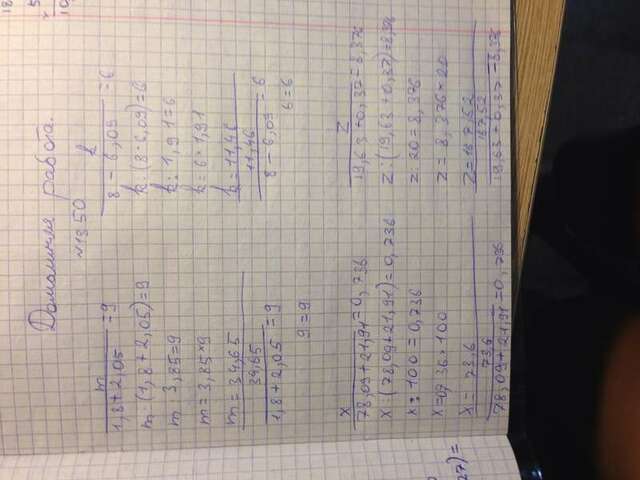 Домашняя работа.
№1350
m
1,8+2,05 =9
m:(1,8+2,05)=9
m:3,85=9
m=3,85×9
m=34,65
34,65
1,8+2,05 =9
9=9
k
8-6,09 =6
k:(8-6,09)=6
k:1,91=6
k=6·1,91
k=11,46
11,46
8-6,09 =6
6=6
x
78,09+21,91 =0,736
x:(78,09+21,91)=0,736
x:100=0,736
x=0,736×100
x=73,6
73,6
78,09+21,91 =0,736
z
19,63+0,37 =8,376
z:(19,63+0,37)=8,376
z:20=8,376
z=8,376×20
z=167,52
167,52
19,63+0,37 =8,376
27)=
18
5
10,